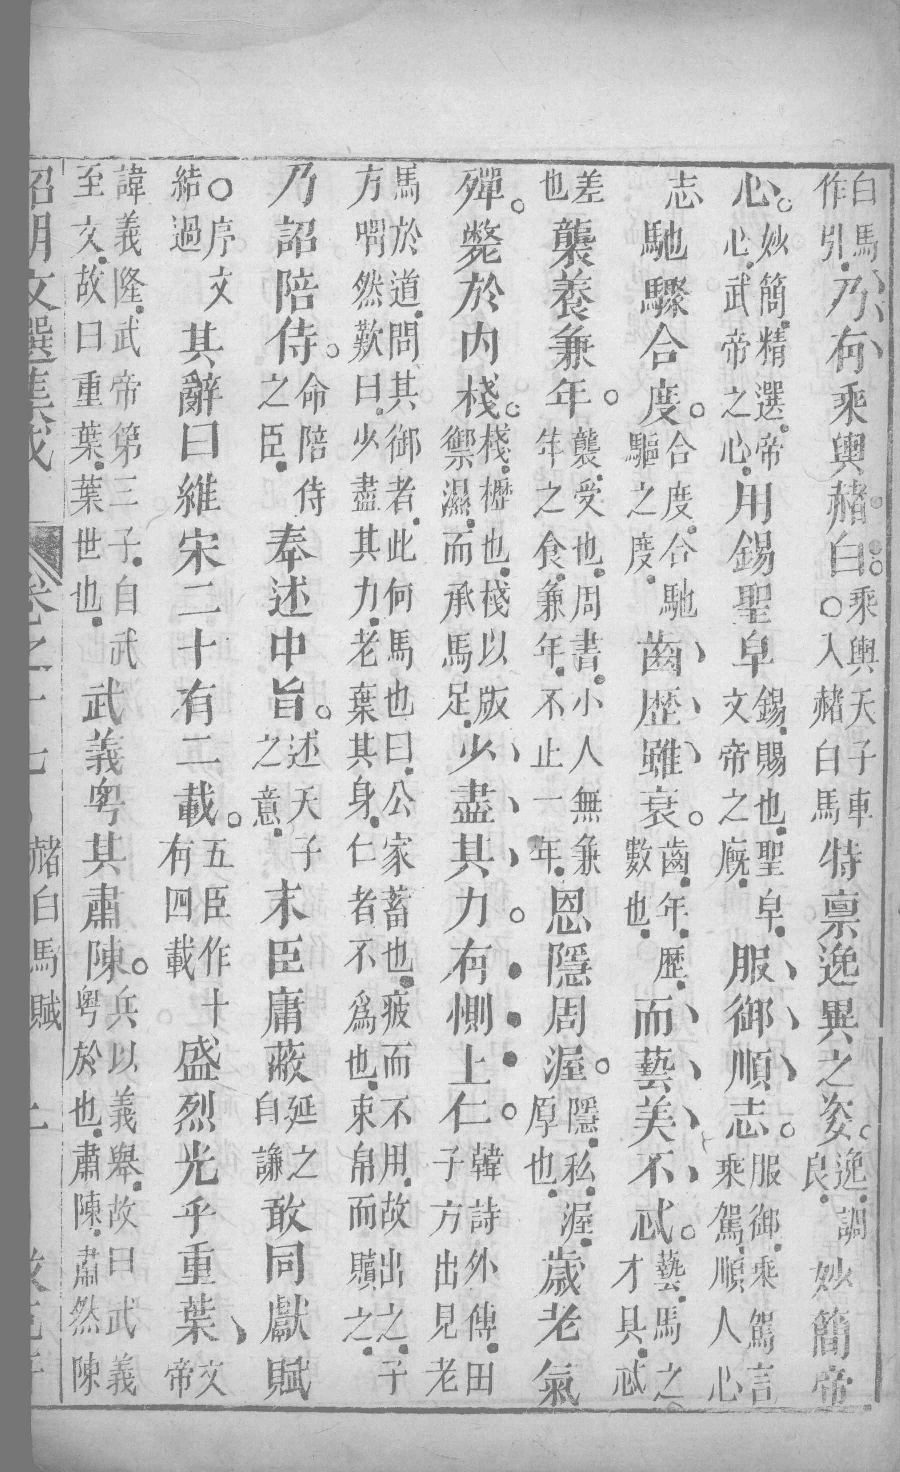 白馬作引乃有乘輿赭白乘輿天子車○入赭白馬特禀逸異之姿逸調良妙簡帝
心妙簡精選帝心武帝之心用錫聖皁錫賜也聖皁文帝之廐服御順志服御乘駕言乘駕順人心
志馳驟合度合度合馳驅之度齒歴雖衰齒年歴數也而藝美不忒藝馬之才具忒
差也襲養兼年襲受也周書小人無兼年之食兼年不止一年恩隱周渥隱私渥厚也歲老氣
殫斃於內棧棧櫪也棧以版禦濕而承馬足少盡其力有惻上仁韓詩外傳田子方出見老
馬於道問其御者此何馬也曰公家畜也疲而不用故出之子方喟然歎曰少盡其力老葉其身仁者不爲也束帛而贖之
乃詔陪侍命陪侍之臣奉述中旨述天子之意末臣庸蔽延之自謙敢同獻賦
○序文結過其辭曰維宋二十有二載五臣作十有四載盛烈光乎重葉文帝
諱義隆武帝第三子自武至文故曰重葉葉世也武義粤其肅陳兵以義舉故曰武義粤於也肅陳肅然陳
昭明文選集成 卷之十七 赭白馬賦 上